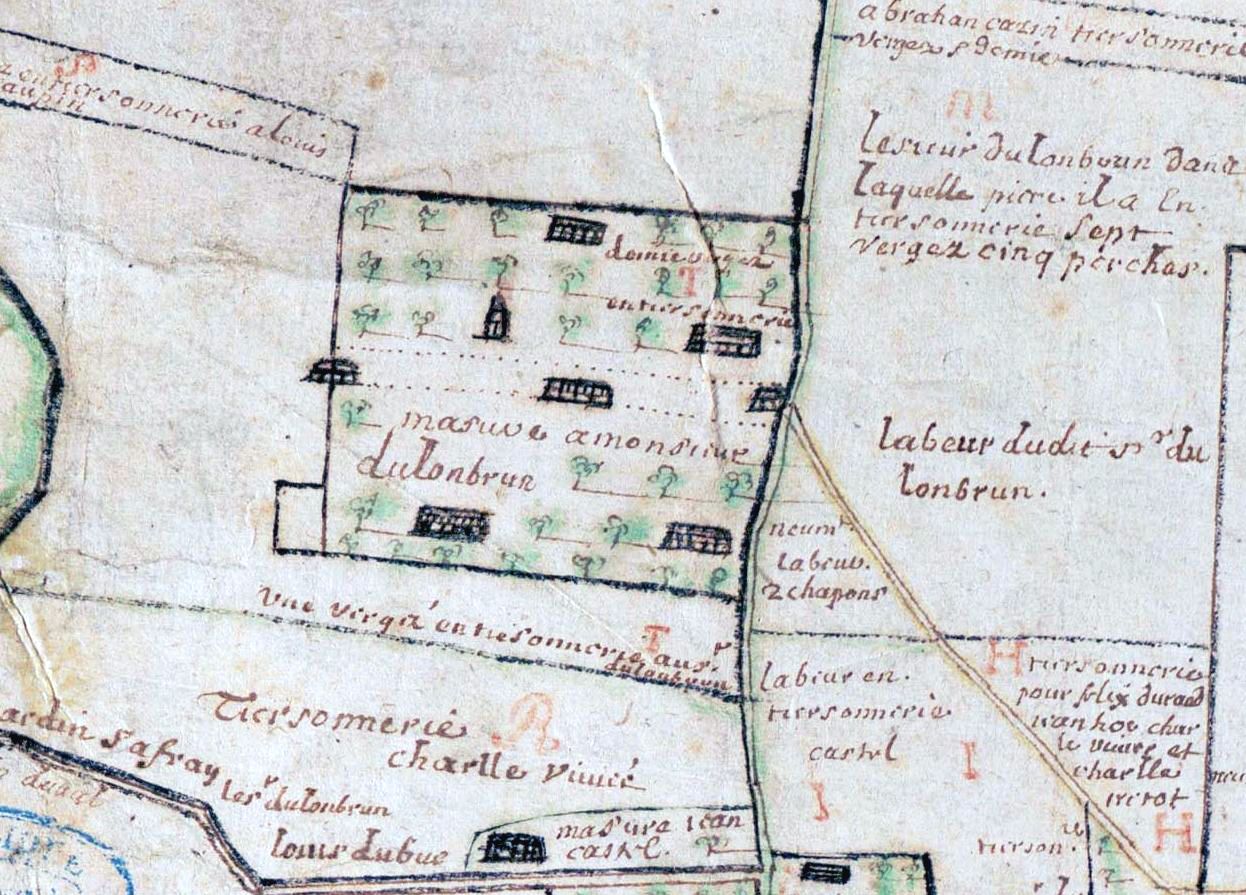 abrahan cazin tiersonnerie
vergez & demie
M
Lesieur du Lonbrun dans
Laquelle piece il a En
tiersonnerie sept
vergez cinq perches.
entiersonnerie a louis
demie vergez
T
entiersonnerie
masure a monsieur
du Lonbrun
labeur dudit sr du
lonbrun.
labeur
2 chapons
vne vergé entiersonnerie au sr
dulonbrun
T
labeur en
tiersonnerie
castel
I
I
H
tiersonnerie
pour felix durand
ican hoy char
le viuire et
charlle
tretot
H
tierson.
Tiersonnerie
R
charlle viuire
ardin Safray
les r dulonbrun
louis dubue
masure ican
castel.